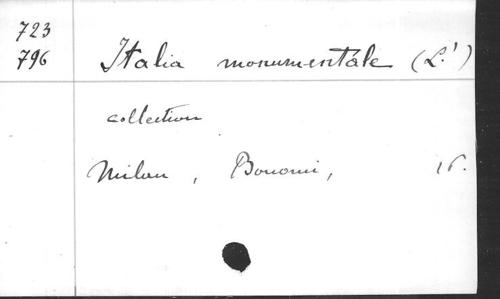 723
796
Italia monumentale (L')
collection
Milan, Bonomi, 16.